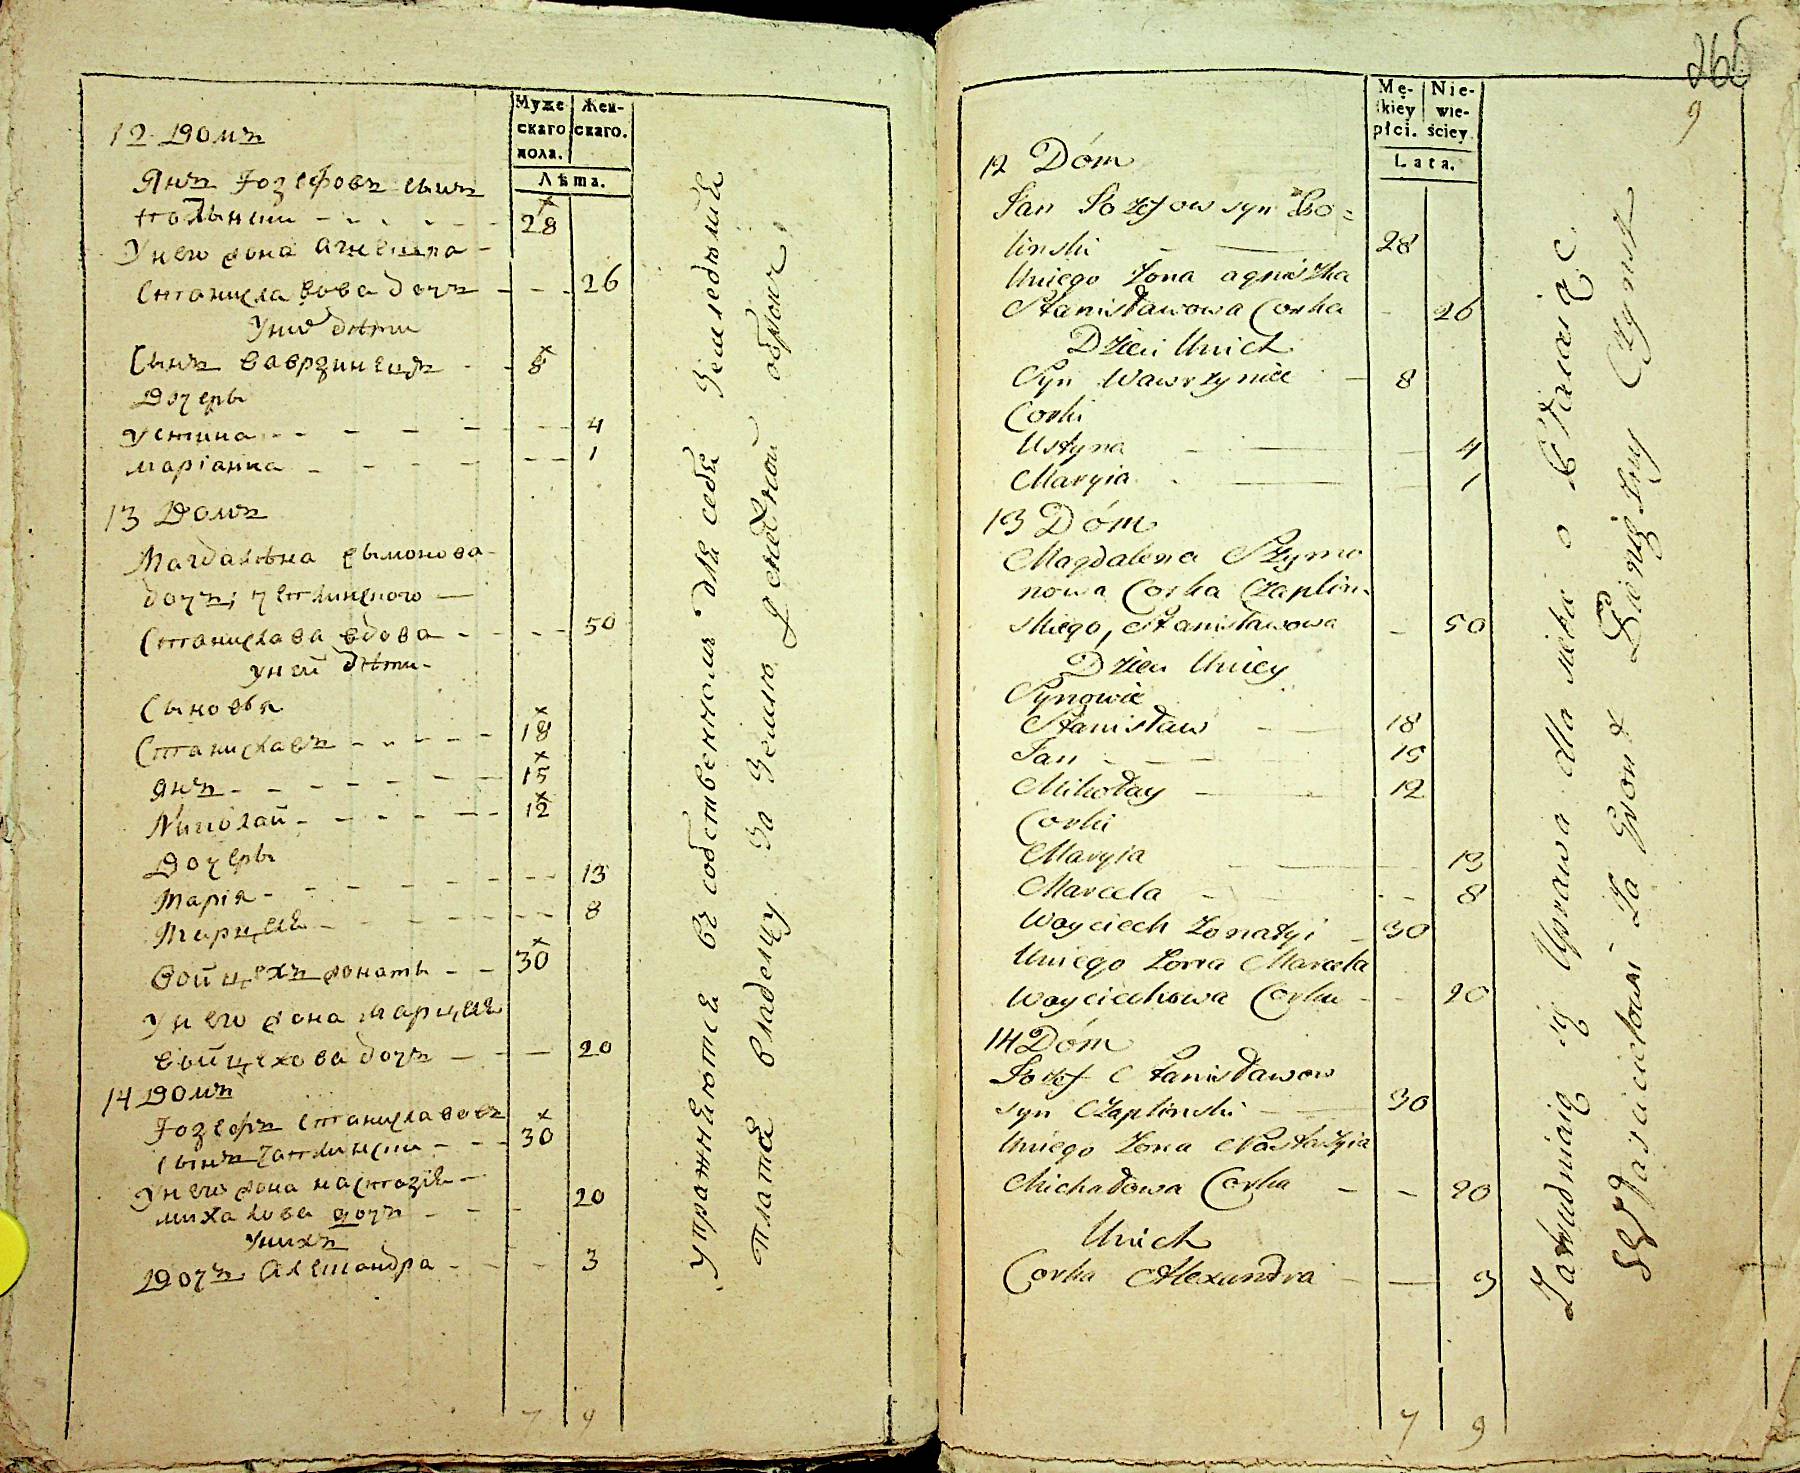 Муже
скаго
пола.
Жен-
скаго.
Лѣта.
12 Домъ
Янъ Іозефовъ сынъ
28
У него жона Агнешка -
Станиславова дочъ - - - 26
У них дѣти
Сынъ Вавржинецъ - - 8
Дочеры
Устина - - - - - - 4
Маріанна - - - - - - 1
13 Домъ
Магдалѣна Сымонова
дочъ,
Станислава вдова - - - - 50
У ней дѣти -
Сыновья
Станиславъ - - - - - 18
Янъ - - - - - - 15
Николай - - - - - - 12
Дочеры
Марія - - - - - - 13
Марцеля - - - - - - 8
Войцехъ жонаты - - 30
У него жона Марцеля
Войцехова дочъ - - - 20
14 Домъ
Іозефъ Станиславовъ
сынъ Чаплинскій - - - 30
У него жона Настазія -
Михалова дочъ - - - 20
У нихъ
Дочъ Алешандра - - - 3
7 9
Упражняются въ собственномъ для себя земледѣліе
платя владельцу за землю денежной оброкъ,
266
9
Mę-
skiey
płci.
Nie-
wie-
ściey
Lata.
12 Dóm
Jan Jozefow syn Bo=
linski - — 28
Uniego Żona agniszka
Stanisławowa Corka - 26
Dzieci Unich
Syn Wawrzyniec — 8
Corki
Ustyna - — — 4
Maryia - — — 1
13 Dóm
Magdalena Szymo
nowa Corka Czaplin
skiego, Stanisławowa - 50
Dzieci Uniey
Synowie
Stanisław - — 18
Jan - - - - 15
Mikołay — - 12
Corki
Maryia - — — 13
Marcela - - - - 8
Woyciech Żonatyi - 30
Uniego Żona Marcela
Woyciechowa Corka - - 20
14 Dóm
Jozef Stanisławow
syn Czaplinski - — 30
Uniego Żona Nastazyia
Michałowa Corka - - 20
Unich
Corka Alexandra — — 3
7 9
Zatrudniaią się Uprawa dla siebie o Płacaiąc
Właścicielowi Za Gront Pieniężny Czynsz